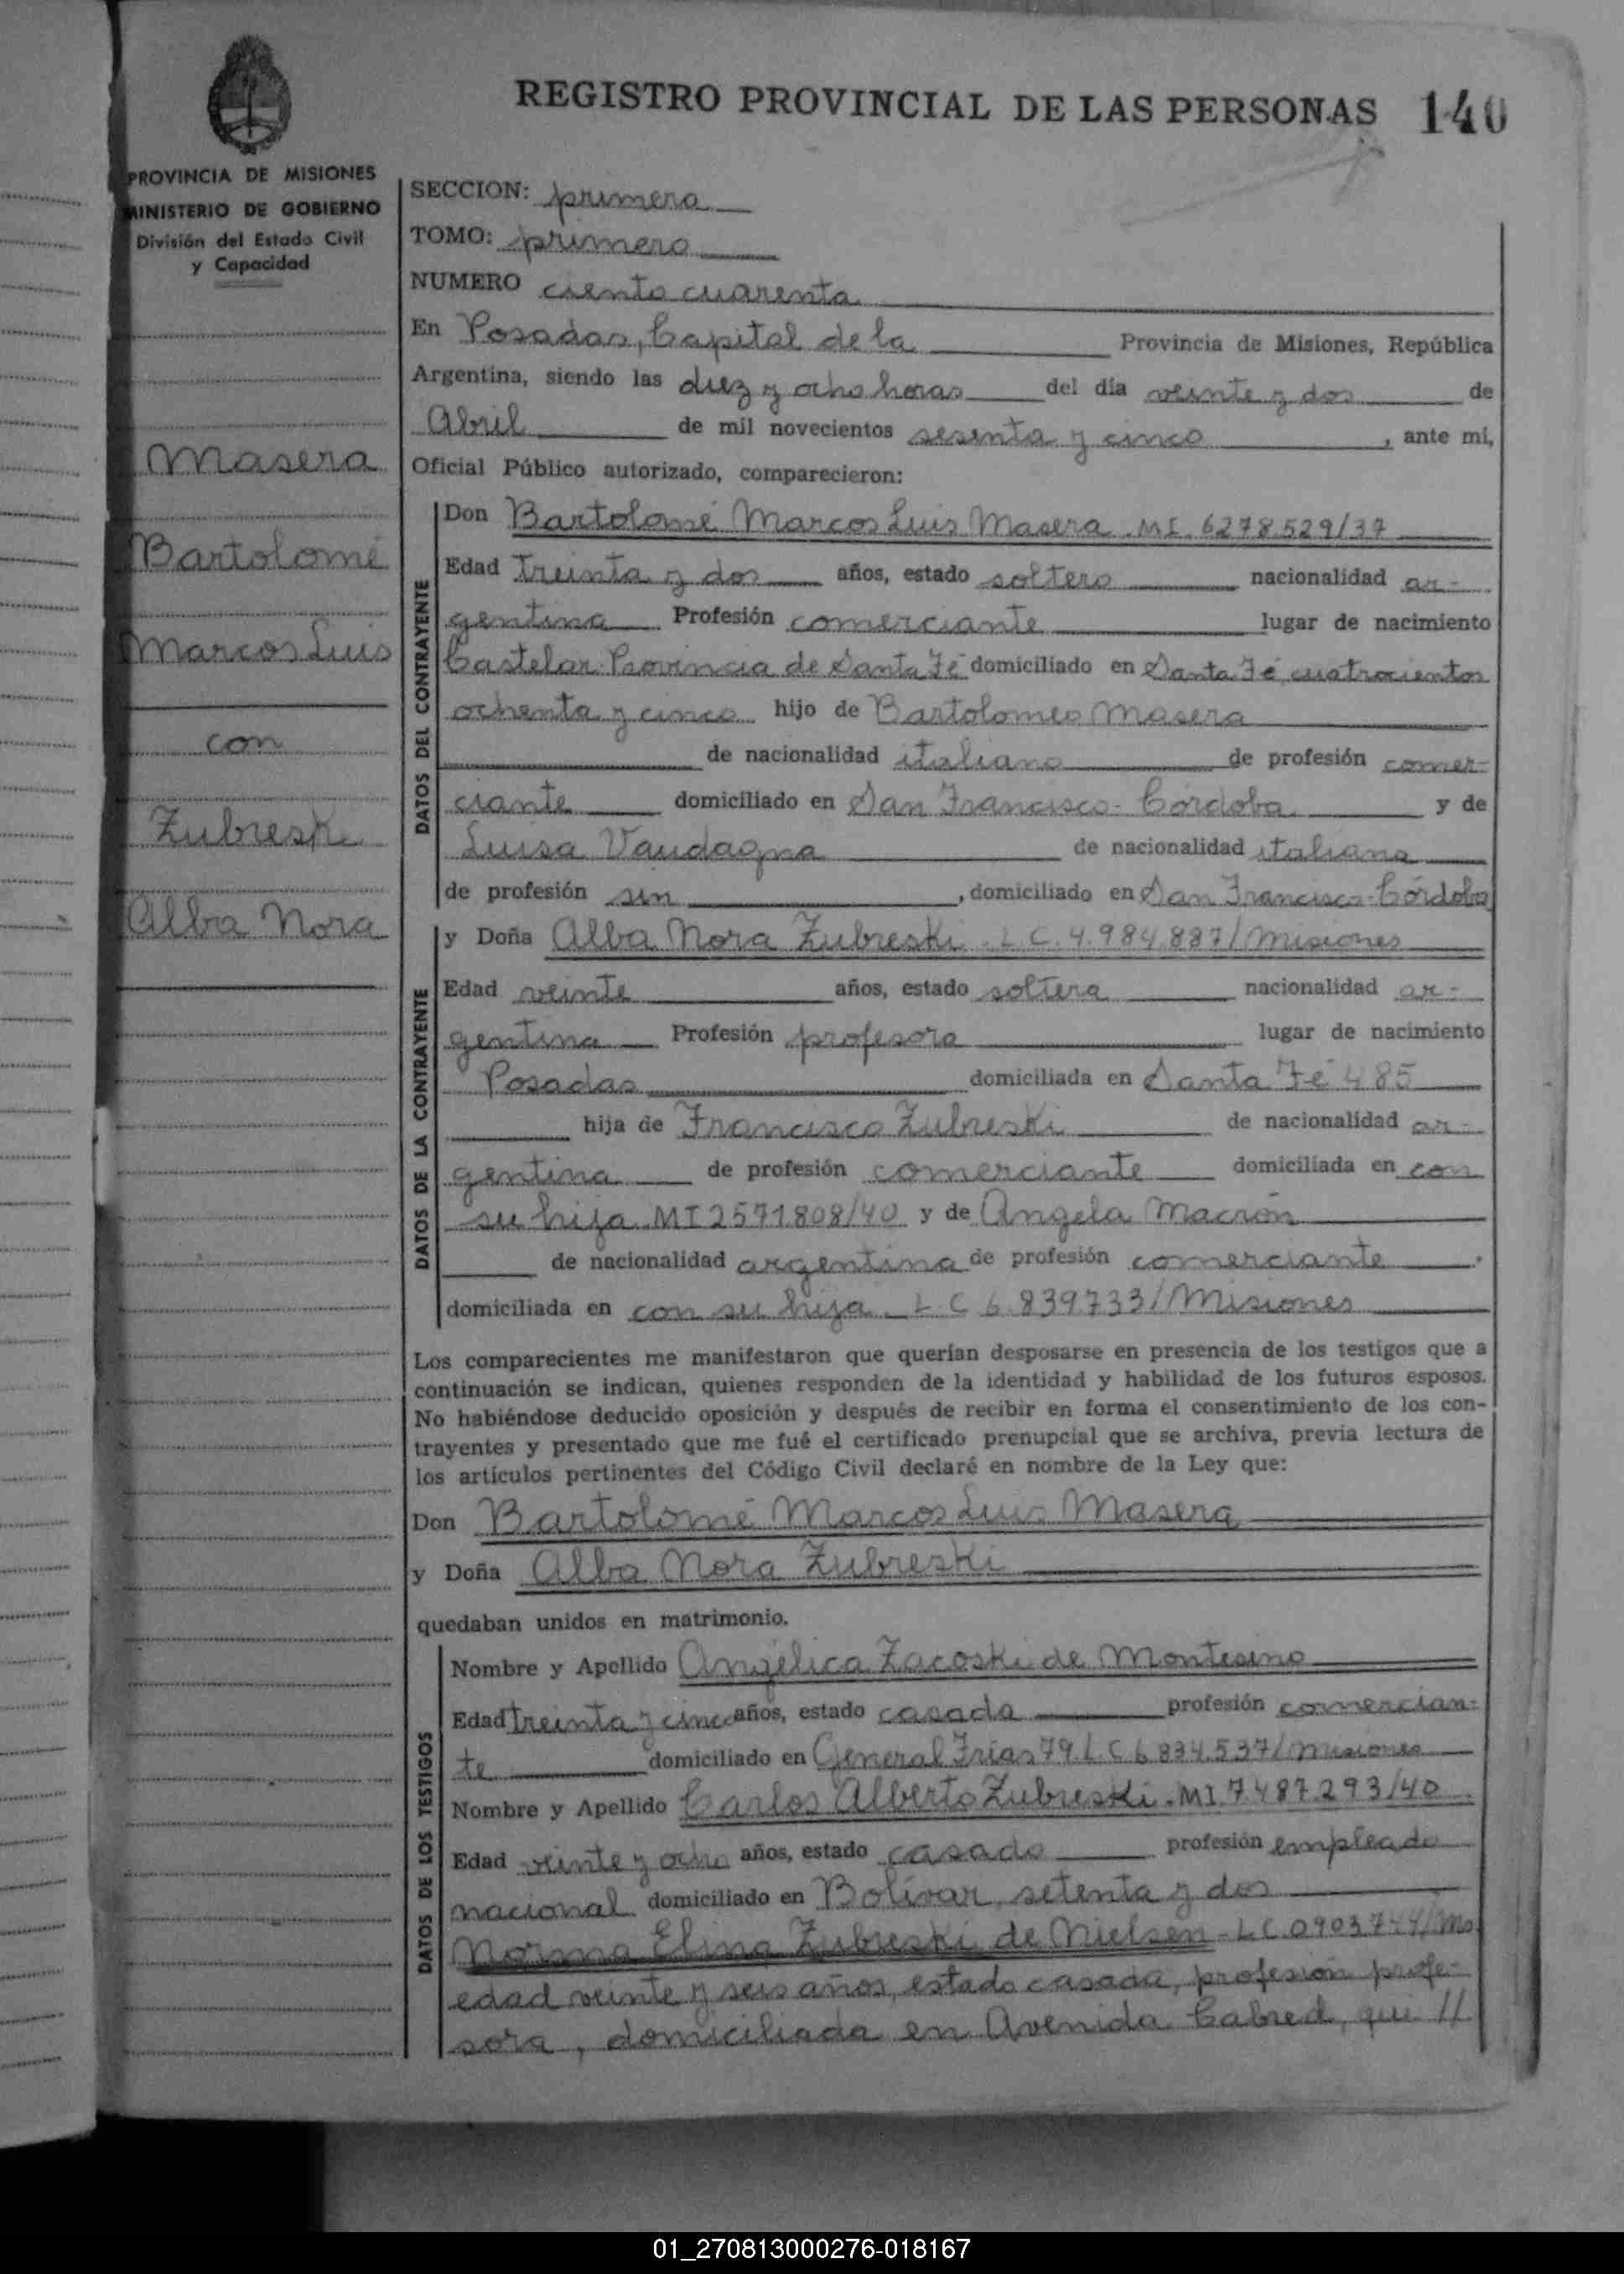 REGISTRO PROVINCIAL DE LAS PERSONAS 140
PROVINCIA DE MISIONES
MINISTERIO DE GOBIERNO
División del Estado Civil
y Capacidad
Masera
Bartolomé
Marcos Luis
con
Zubreski
Alba Nora
SECCION: primera
TOMO: primero
NUMERO ciento cuarenta
En Posadas, Capital de la Provincia de Misiones, República
Argentina, siendo las diez y ocho horas del día veinte y dos de
Abril de mil novecientos sesenta y cinco, ante mí,
Oficial Público autorizado, comparecieron:
DATOS DEL CONTRAYENTE
Don Bartolomé Marcos Luis Masera. MI. 6278.529/37
Edad treinta y dos años, estado soltero nacionalidad ar-
gentina Profesión comerciante lugar de nacimiento
Castelar. Provincia de Santa Fé domiciliado en Santa Fé, cuatrocientos
ochenta y cinco hijo de Bartolomeo Masera
de nacionalidad italiano de profesión comer-
ciante domiciliado en San Francisco - Córdoba y de
Luisa Vaudagna de nacionalidad italiana
de profesión sin, domiciliado en San Francisco - Córdoba
DATOS DE LA CONTRAYENTE
y Doña Alba Nora Zubreski. L C. 4.984.887/Misiones
Edad veinte años, estado soltera nacionalidad ar-
gentina Profesión profesora lugar de nacimiento
Posadas domiciliada en Santa Fé 485
hija de Francisco Zubreski de nacionalidad ar-
gentina de profesión comerciante domiciliada en con
su hija. MI 2571808/40 y de Angela Macrón
de nacionalidad argentina de profesión comerciante.
domiciliada en con su hija. L C 6.839733/Misiones
Los comparecientes me manifestaron que querían desposarse en presencia de los testigos que a
continuación se indican, quienes responden de la identidad y habilidad de los futuros esposos.
No habiéndose deducido oposición y después de recibir en forma el consentimiento de los con-
trayentes y presentado que me fué el certificado prenupcial que se archiva, previa lectura de
los artículos pertinentes del Código Civil declaré en nombre de la Ley que:
Don Bartolomé Marcos Luis Masera
y Doña Alba Nora Zubreski
quedaban unidos en matrimonio.
DATOS DE LOS TESTIGOS
Nombre y Apellido Angélica Zacoski de Montesino
Edad treinta y cinco años, estado casada profesión comercian-
te domiciliado en General Frías 79. L C 6.834.537/Misiones
Nombre y Apellido Carlos Alberto Zubreski - MI. 7.487.293/40
Edad veinte y ocho años, estado casado profesión empleado
nacional domiciliado en Bolívar, setenta y dos
Norma Elina Zubreski de Nielsen - L.C. 0903744/Mo.
edad veinte y seis años, estado casada, profesión profe-
sora, domiciliada en Avenida Cabred, qui //
01_270813000276-018167